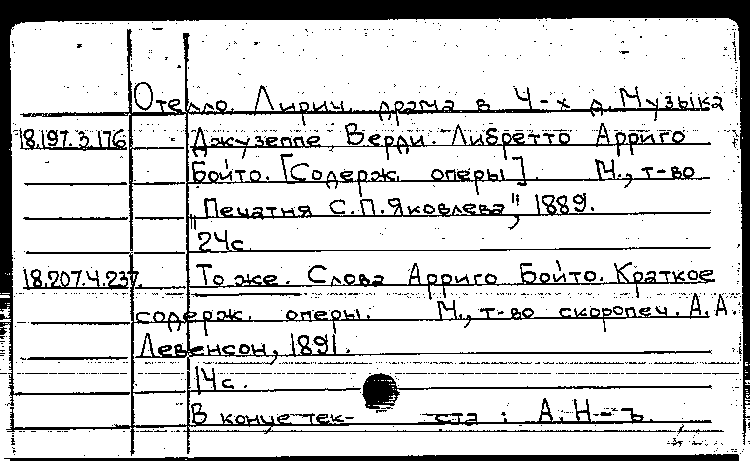 Отелло. Лирич. драма в 4-х д. Музыка
18.197.3.176 Джузеппе Верди. Либретто Арриго
Бойто. [Содерж. оперы]. М., т-во
"Печатня С.П.Яковлева", 1889.
24с.
18.207.4.237. То же. Слова Арриго Бойто. Краткое
содерж. оперы. М., т-во скоропеч. А.А.
Левенсон, 1891.
14с.
В конце тек- ста: А. Н-ъ.